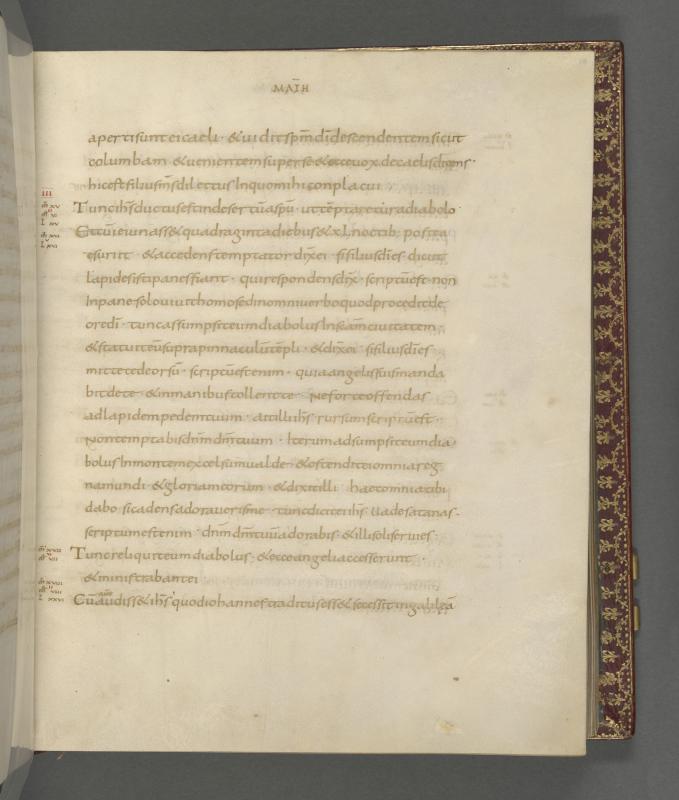 MATH
aperti sunt ei caeli · & uidit spm di descendentem sicut
columbam · & uenientem super se & ecce uox de caelis dicens ·
hic est filius ms dilectus In quo mihi conplacui
III
Tunc ihs ductus est in desertū a spu · ut temptaretur a diabolo
Et cū ieiunass& quadraginta diebus & xl noctib; postea
esuriit · & accedens temptator dix ei · si filius di es dic ut
lapides isti panes fiant · qui respondens dix · scriptū est · non
In pane solo uiuit homo sed in omni uerbo quod procedit de
ore di · tunc assumpsit eum diabolus In scam ciuitatem
& statuit eū supra pinnaculū tepli · & dix ei · si filius di es
mitte te deorsū · scriptū est enim · quia angelis suis manda
bit de te · & in manibus tollent te · Ne forte offendas
ad lapidem pedem tuum · ait illi ihs rursum scriptū est ·
Non temptabis dnm dm tuum · Iterum adsumpsit eum dia
bolus In montem excelsum ualde · & ostendit ei omnia reg
na mundi · & gloriam eorum · & dixit illi haec omnia tibi
dabo si cadens adoraueris me · tunc dicit ei ihs Uade satanas ·
scriptum est enim · dnm dm tuū adorabis · & illi soli seruies ·
Tunc reliquit eum diabolus · & ecce angeli accesserunt ·
& ministrabant ei
Cū autē audiss& ihs quod iohannes traditus ess& secessit in galileā